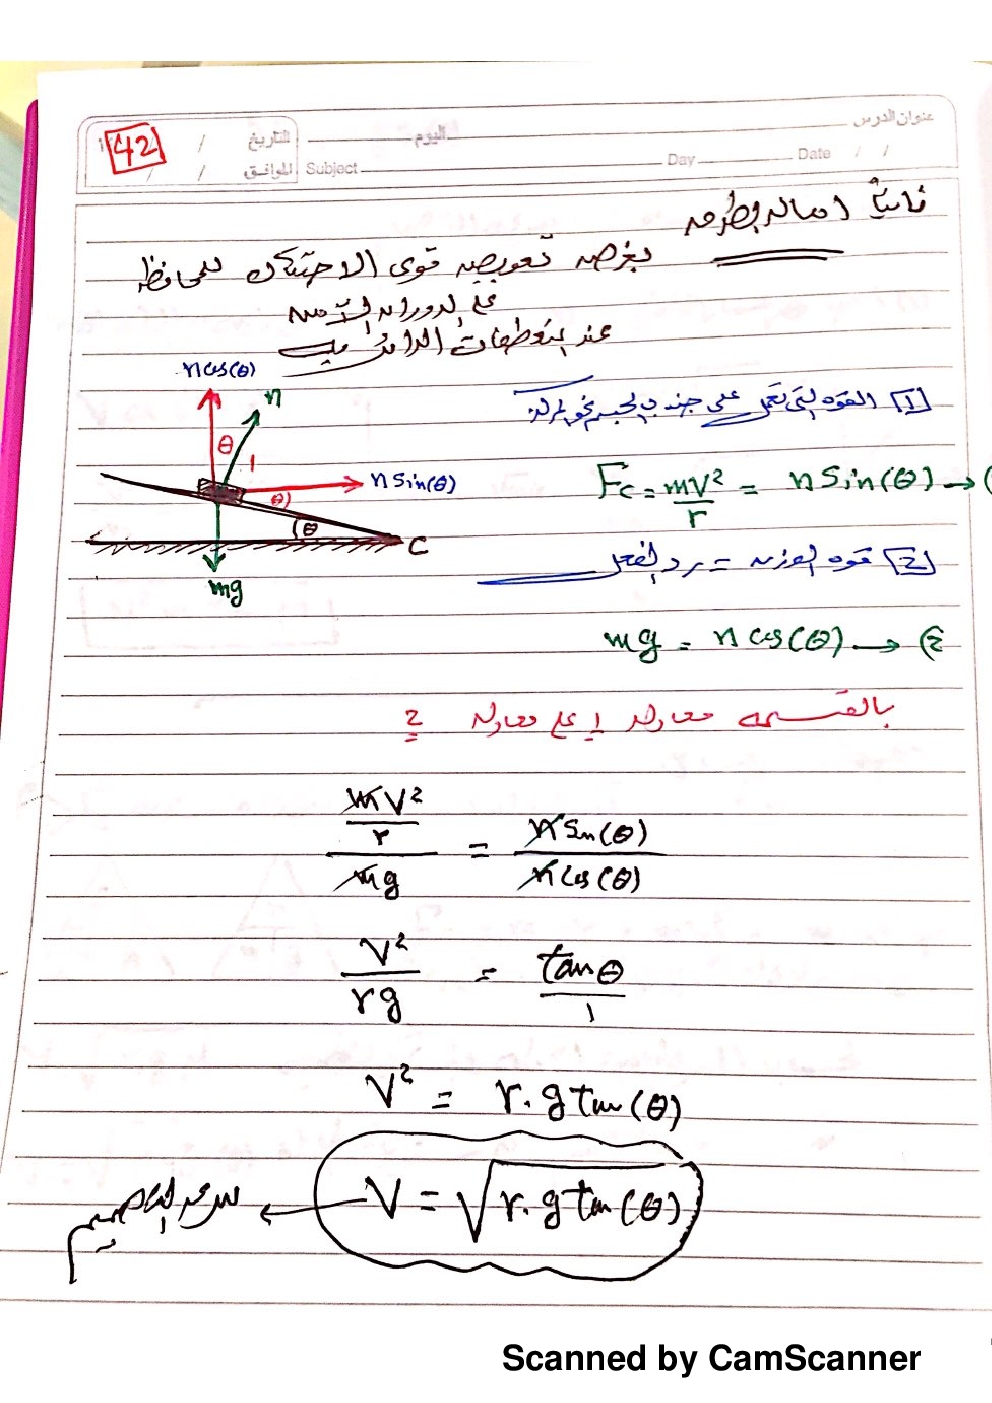 42
التاريخ / / اليوم عنوان الدرس
الموافق / / Subject Day Date / /
ثانياً امالة الطرق
بغرض تعويض قوى الاحتكاك للمحافظة
على الدوران الآمن
عند المنعطفات الدائرية
n cos(θ)
n
θ
n sin(θ)
θ
θ
C
mg
[1] القوه التي تعمل على جذب الجسم نحو المركز
Fc = mv²/r = n Sin(θ) → (
[2] قوه الوزن = رد الفعل
mg = n cos(θ) → (2
بالقسمه معادله 1 على معادله 2
(mv²/r)/(mg) = (n Sin(θ))/(n Cos(θ))
v²/(rg) = tan θ/1
v² = r.g tan(θ)
V = √(r.g tan(θ))
سرعه التصميم
Scanned by CamScanner